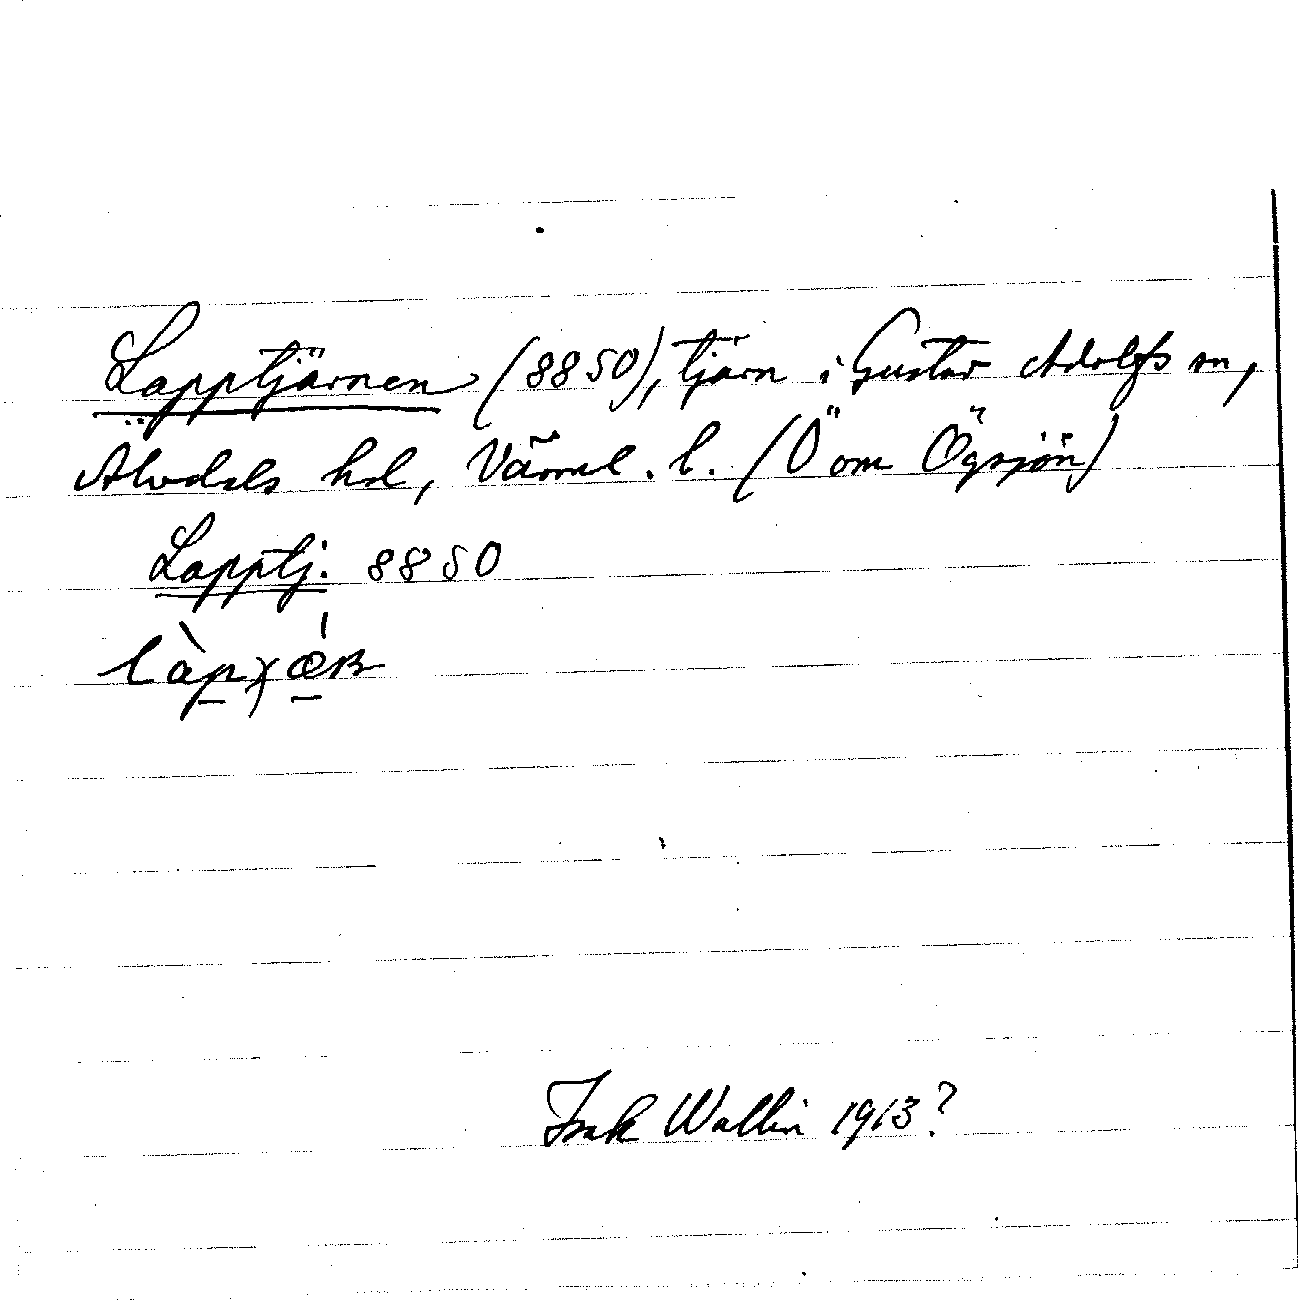 Lapptjärnen (8850), tjärn i Gustav Adolfs sn,
Älvdals hd, Värml. l. (Ö om Ögsjön)
Lapptj. 8850
Isak Wallin 1913?